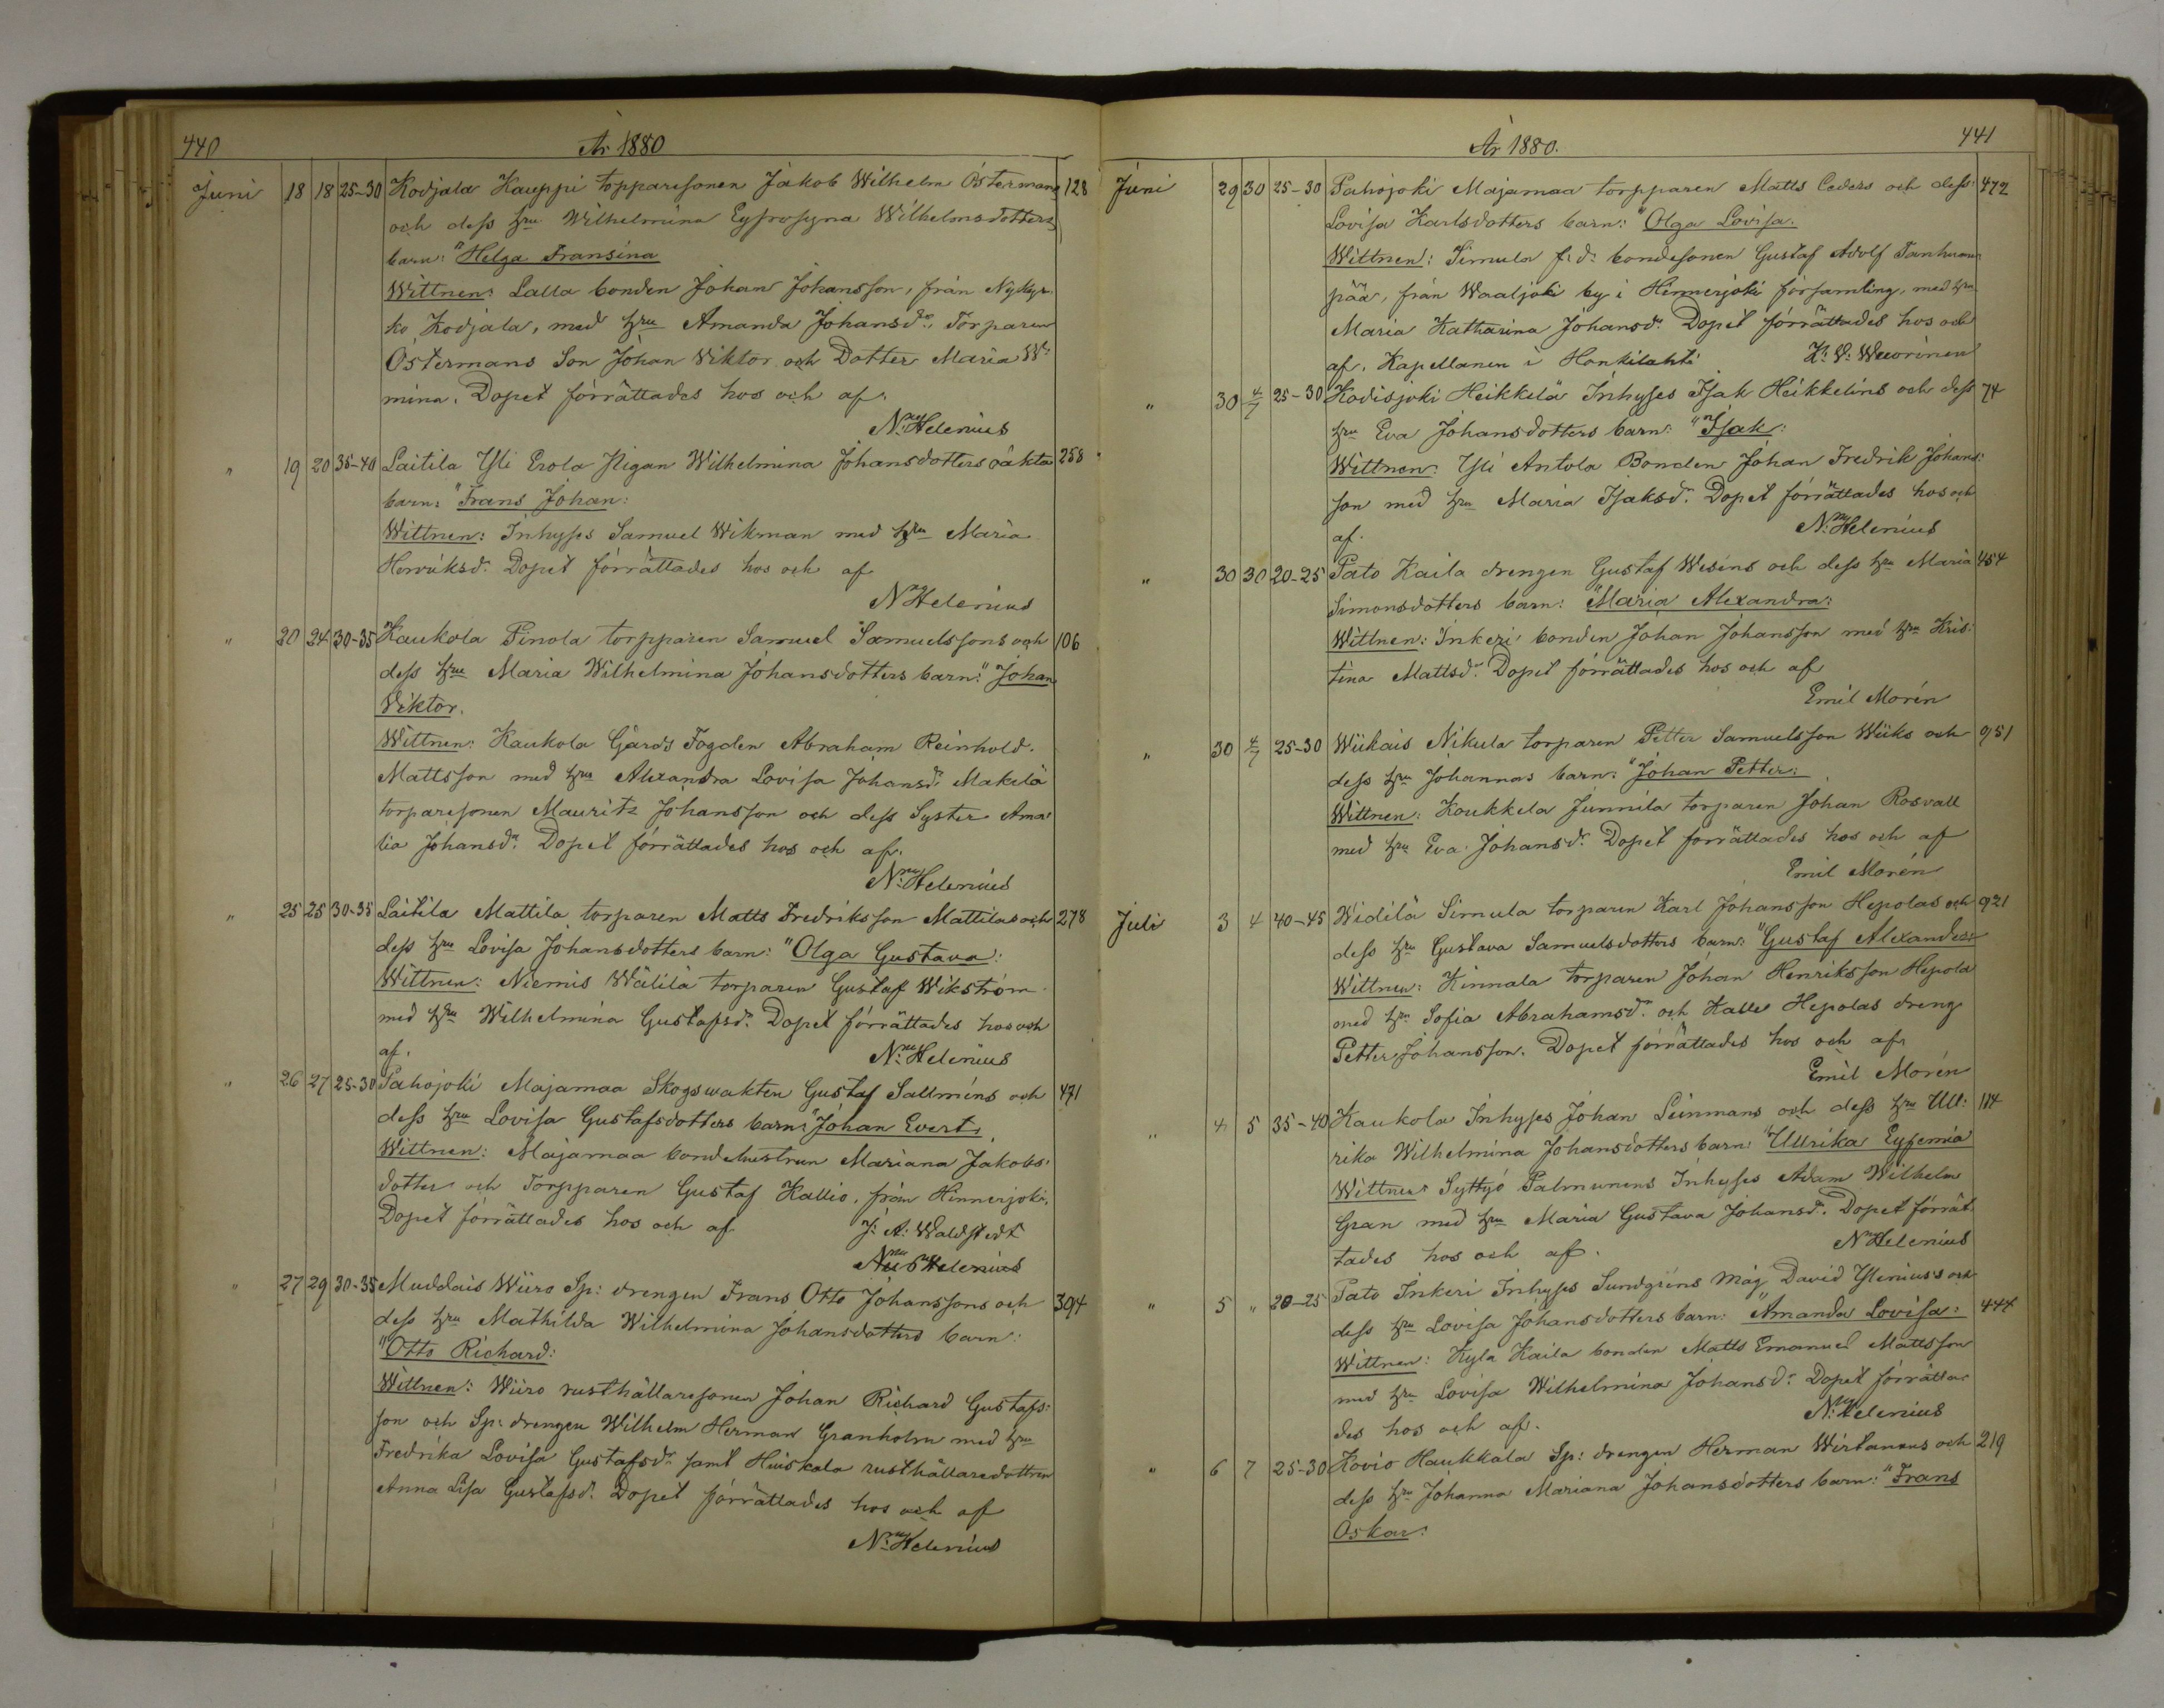 440
År 1880
Juni 18 18 25-30 Kodjala Kauppi topparesonen Jakob Wilhelm Östermans 128
och dess hru Wilhelmina Eyfrosyna Wilhelmsdotters
barn: "Helga Fransina
Wittnen: Lalla bonden Johan Johansson, från Nykyr-
ko Kodjala, med hru Amanda Johansdr, Torparen
Östermans Son Johan Viktor och Dotter Maria W:
mina. Dopet förrättades hos och af.
N. Helenius
" 19 20 35-40 Laitila Yli Erola Pigan Wilhelmina Johansdotters oäkta 258
barn: "Frans Johan:
Wittnen: Inhyses Samuel Wikman med hru Maria
Henriksd. Dopet förrättades hos och af
N Helenius
" 20 24 30-35 Kaukola Pinola torpparen Samuel Samuelssons och 106
dess hru Maria Wilhelmina Johansdotters barn: "Johan
Viktor.
Wittnen: Kaukola Gårds Fogden Abraham Reinhold
Mattsson med hru Alexandra Lovisa Johansdr Makelä
torparesonen Mauritz Johansson och dess Syster Ama:
lia Johansdr. Dopet förrättades hos och af.
N. Helenius
" 25 25 30-35 Laitila Mattila torparen Matts Fredriksson Mattilas och 278
dess hru Lovisa Johansdotters barn: "Olga Gustava:
Wittnen: Niemis Wälilä torparen Gustaf Wikström
med hru Wilhelmina Gustafsd. Dopet förrättades hos och
af. N. Helenius
" 26 27 25-30 Pahojoki Majamaa Skogswakten Gustaf Salmins och 471
dess hru Lovisa Gustafsdotters barn: "Johan Evert:
Wittnen: Majamaa bondehustrun Mariana Jakobs:
dotter och Torpparen Gustaf Kallio, från Hinnerjoki.
Dopet förrättades hos och af J: A: Waldstedt
N Helenius
" 27 29 30-35 Muddais Wiiro Sp: drengen Frans Otto Johanssons och 394
dess hru Mathilda Wilhelmina Johansdotters barn:
"Otto Richard:
Wittnen: Wiiro rusthållaresonen Johan Richard Gustafs:
son och Sp: drengen Wilhelm Herman Granholm med hru
Fredrika Lovisa Gustafsdr samt Hiuskala rusthållaredottren
Anna Lisa Gustafsd. Dopet förrättades hos och af
N. Helenius
441
År 1880.
Juni 29 30 25-30 Pahojoki Majamaa torpparen Matts Ceders och dess: 472
Lovisa Karlsdotters barn: "Olga Lovisa.
Wittnen: Simula f.d. bondesonen Gustaf Adolf Tanhuan:
pää, från Waaljoki by i Hinnerjoki församling, med hru
Maria Katharina Johansd. Dopet förrättades hos och
af. Kapellanen i Honkilahti K: W: Wuorinen
" 30 4/7 25-30 Kodisjoki Heikkelä Inhyses Isak Heikkelins och dess 74
hru Eva Johansdotters barn: "Isak:
Wittnen: Yli Antola Bonden Johan Fredrik Johans:
son med hru Maria Isaksd. Dopet förrättades hos och
af. N. Helenius
" 30 30 20-25 Pato Kaila drengen Gustaf Wesins och dess hru Maria 454
Simonsdotters barn: "Maria Alexandra:
Wittnen: Inkeri bonden Johan Johansson med hru Kris:
tina Mattsd. Dopet förrättades hos och af
Emil Morén
" 30 4/7 25-30 Wiikais Nikula torparen Petter Samuelsson Wiiks och 951
dess hru Johannas barn: "Johan Petter:
Wittnen: Koukkela Junnila torparen Johan Rosvall
med hru Eva Johansd. Dopet förrättades hos och af
Emil Morén
Juli 3 4 40-45 Widilä Simula torparen Karl Johansson Hepolas och 921
dess hru Gustava Samuelsdotters barn: "Gustaf Alexander:
Wittnen: Kinnala torparen Johan Henriksson Hepola
med hru Sofia Abrahamsd. och Kalle Hepolas dreng
Petter Johansson. Dopet förrättades hos och af
Emil Morén
" 4 5 35-40 Kaukola Inhyses Johan Leinmans och dess hru Ull: 114
rika Wilhelmina Johansdotters barn: "Ullrika Eyfemia
Wittnen Syttyö Palmunens Inhyses Adam Wilhelm
Gran med hru Maria Gustava Johansd. Dopet förrät
tades hos och af. N Helenius
" 5 " 20-25 Pato Inkeri Inhyses Sundgrens Måg David Yleniuss och
dess hru Lovisa Johansdotters barn: "Amanda Lovisa: 444
Wittnen: Kyla Kaila bonden Matts Emanuel Mattsson
med hru Lovisa Wilhelmina Johansd. Dopet förrätta-
des hos och af. N. Helenius
" 6 7 25-30 Kovio Haukkala Sp: drengen Herman Wirtanens och 219
dess hru Johanna Mariana Johansdotters barn: "Frans
Oskar: